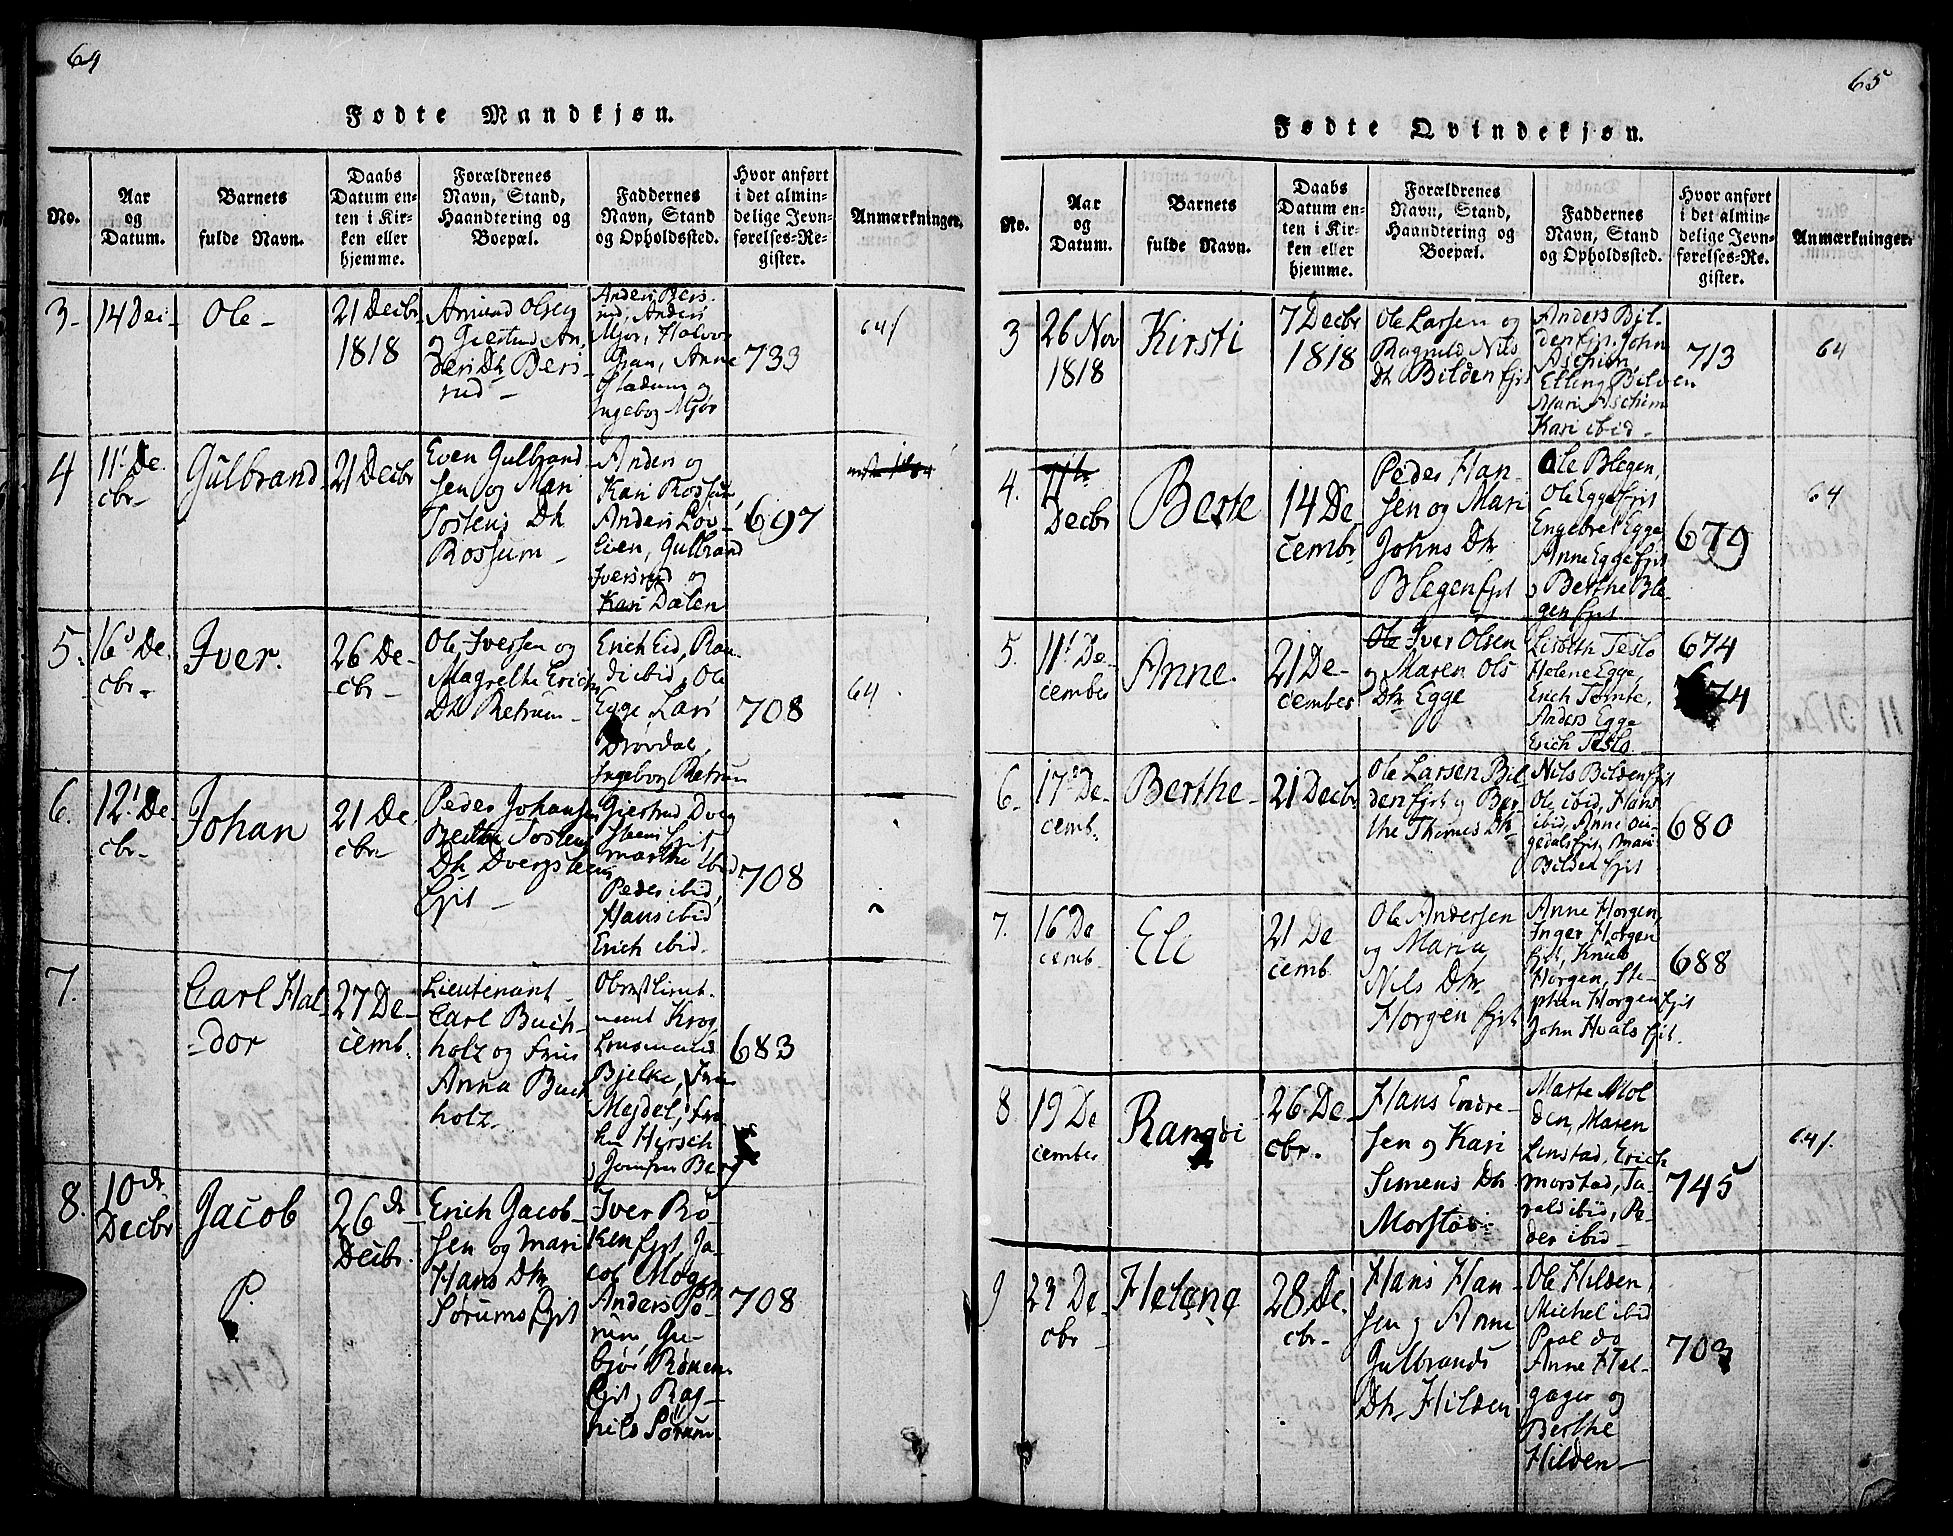 64
Fødte Mandkjøn.
No.
Aar
og
Datum.
Barnets
fulde Navn.
Daabs
Datum en-
ten i Kir-
ken eller
hjemme.
Forældrenes
Navn, Stand,
Haandtering og
Boepæl.
Faddernes
Navn, Stand
og Opholdssted.
Hvor anført
i det almin-
delige Jevn-
førelses-Re-
gister.
Anmærkninger.
3-
14 Dec-
Ole-
21 Decbr
1818
Amund Olsen
og Giertrud An-
ders Dtr Bers
rud-
Anders Bers-
rud, Anders
Mjør, Halvor
Gran, Anne
Hladum og
Ingebor Mjør
733
64/
4
11' De
cbr-
Gulbrand
21 Decbr
Even Gulbrand
sen og Mari
Tostens Dtr
Rossum-
Anders og
Kari Rossum,
Anders Løv-
Even, Gulbrand
Iversrud og
Kari Dælen
697
5.
16' De
cbr-
Iver.
26 De-
cbr-
Ole Iversen og
Magrethe Erichs
Dtr Retrum-
Erich Eid, Ran-
di ibid, Ole
Egge, Lari
Drøvdal,
Ingebor Retrum
708
64.
6.
12' De
cbr-
Johan
21 De
cbr-
Peder Johansen
Berthe Tostens
Dtr Dvergsteens
Ejet-
Giertrud Dverg
steens Ejet
marthe ibid
Peder ibid,
Hans ibid
Erich ibid.
708
7.
Carl Hal-
-dor
27 De-
cemb.
Lieutenant
Carl Buch-
holz og Frue
Anna Buch
holz.
Obrestlieut-
nant Krog
Lensmand
Bjelke, Frue
Mejdel, frø-
ken Hirsch
Jomfru Berg
683
8.
10de
Decbr
Jacob
P.
26de
Decbr.
Erich Jacob-
sen og Mari
Hans Dtr
Sørums Ejet
Iver Rø-
ken Ejet, Ja-
cob Mogen
Anders Sø-
rum, Gu-
bjør Rønen
Ejet, Rag-
nild Sørum
708
65
Fødte Qvindekjøn.
No.
Aar
og
Datum.
Barnets
fulde Navn.
Daabs
Datum en-
ten i Kir-
ken eller
hjemme.
Forældrenes
Navn, Stand,
Haandtering og
Boepæl.
Faddernes
Navn, Stand
og Opholdssted.
Hvor anført
i det almin-
delige Jevn-
førelses-Re-
gister.
Anmærkninger.
3
26 Nov
1818
Kirsti
7 Decbr
1818
Ole Larsen og
Ragnild Nils
Dtr Bilden Ejet
Anders Bil-
den Ejet, John
Aschim,
Elling Bilden
Mari Aschim
Kari ibid-
713
64
4.
11te
Decbr
Berte
14 De
cembr
Peder Han-
sen og Mari
Johns Dtr
Blegen Ejet
Ole Blegen,
Ole Egge Ejet
Engebret Egge
Anne Egge Ejet
og Berthe Ble-
gen Ejet
679
64
5.
11' De-
cember
Anne.
21 De-
cember
Ole Iver Olsen
og Maren Ols
Dtr Egge
Lisbeth Teslo
Helene Egge,
Erich Tømte,
Anders Egge
Erich Teslo
674
674
6-
17' De-
cemb.
Berthe-
21 Decbr
Ole Larsen Bil-
den Ejet og Ber-
the Thomes Dtr
Nils Bilden Ejet
Ole ibid, Hans
ibid, Anne Ou-
gedals Ejet, Mari
Bilden Ejet
680
7.
16 De
cemb-
Eli
21 De
cemb
Ole Andersen
og Maria
Nils Dtr
Horgen Ejet
Anne Horgen,
Inger Horgen
Ejet, Knud
Horgen, Ste-
phen Horgen Ejet
John Hvals Ejet.
688
8
19 De
cember
Rangdi
26 De-
cbr.
Hans Endre-
sen og Kari
Simens Dtr
Morstad-
Marte Mol
den, Maren
Linstad, Erich
morstad, Ta-
rald ibid, Pe-
der ibid-
745
64/.
9
23 De-
cbr
Helene
28 De.
cbr-
Hans Han-
sen og Anne
Gulbrands
Dtr Hilden
Ole Hilden,
Michel ibid
Poal do
Anne Hel-
gager og
Berthe
Hilden-
703